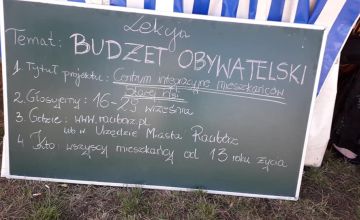 Lekcja
Temat: BUDŻET OBYWATELSKI
1. Tytuł projektu: Centrum integracyjne mieszkańców
Starej Wsi
2. Głosujemy: 16-29 września
3. Gdzie: www.raciborz.pl
lub w Urzędzie Miasta Racibórz
4. Kto: wszyscy mieszkańcy od 13 roku życia